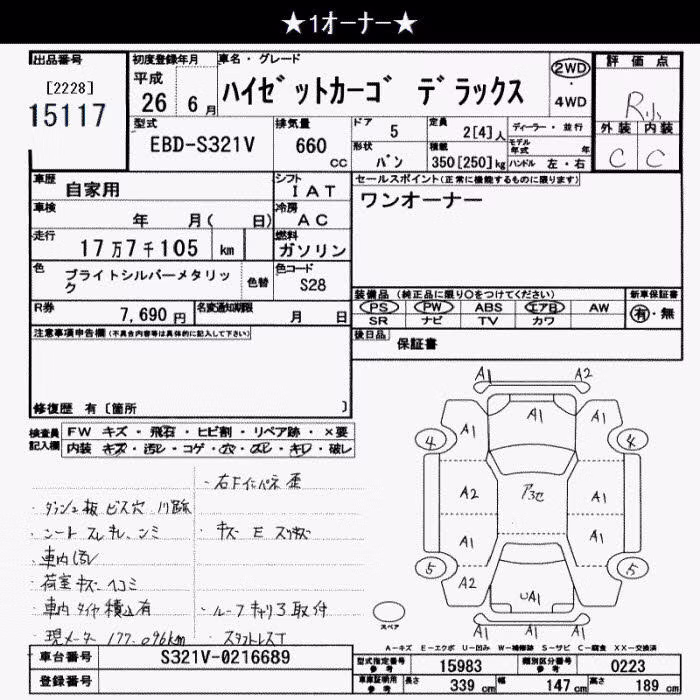 ★1オーナー★
出品番号 初度登録年月 車名・グレード 評価点
[2228] 平成 2WD
15117 26 6月 ハイゼットカーゴ デラックス ・4WD R小
型式 排気量 ドア 5 定員 2[4]人 ディーラー・並行 外装 内装
EBD-S321V 660cc 形状 バン 積載 350[250]kg モデル年式 年 C C
ハンドル 左・右
車歴 自家用 シフト IAT セールスポイント(正常に機能するものに限ります)
車検 年 月( 日) 冷房 AC ワンオーナー
走行 17万7千105 km 燃料 ガソリン
色 ブライトシルバーメタリック 色替 色コード S28
R券 7,690円 名変通知期限 月 日
装備品(純正品に限り○をつけてください) 新車保証書
PS PW ABS エア日 AW 有・無
SR ナビ TV カワ
注意事項申告欄(不具合内容等は具体的に記入して下さい) 後日品 保証書
修復歴 有〔箇所 〕
検査員記入欄 FW キズ・飛石・ヒビ割・リペア跡・×要
内装 キズ・汚レ・コゲ・穴・スレ・キレ・破レ
A1 A2
A1 A1 A1
4 4
A2 A1
A1 A1
5 5
A2 UA1 A1
・ダッシュ板 ビス穴
・車内汚レ
・荷室 キズ ヘコミ
・車内 タイヤ 積込有 ・ルーフ キャリア取付
・現メーター 177,096km ・スタットレスT
スペア
A-キズ E-エクボ U-凹み W-補修跡 S-サビ C-腐食 XX-交換済
車台番号 S321V-0216689 型式指定番号 参考 15983 類別区分番号 参考 0223
登録番号 車庫証明用 参考 長さ 339cm 幅 147cm 高さ 189cm